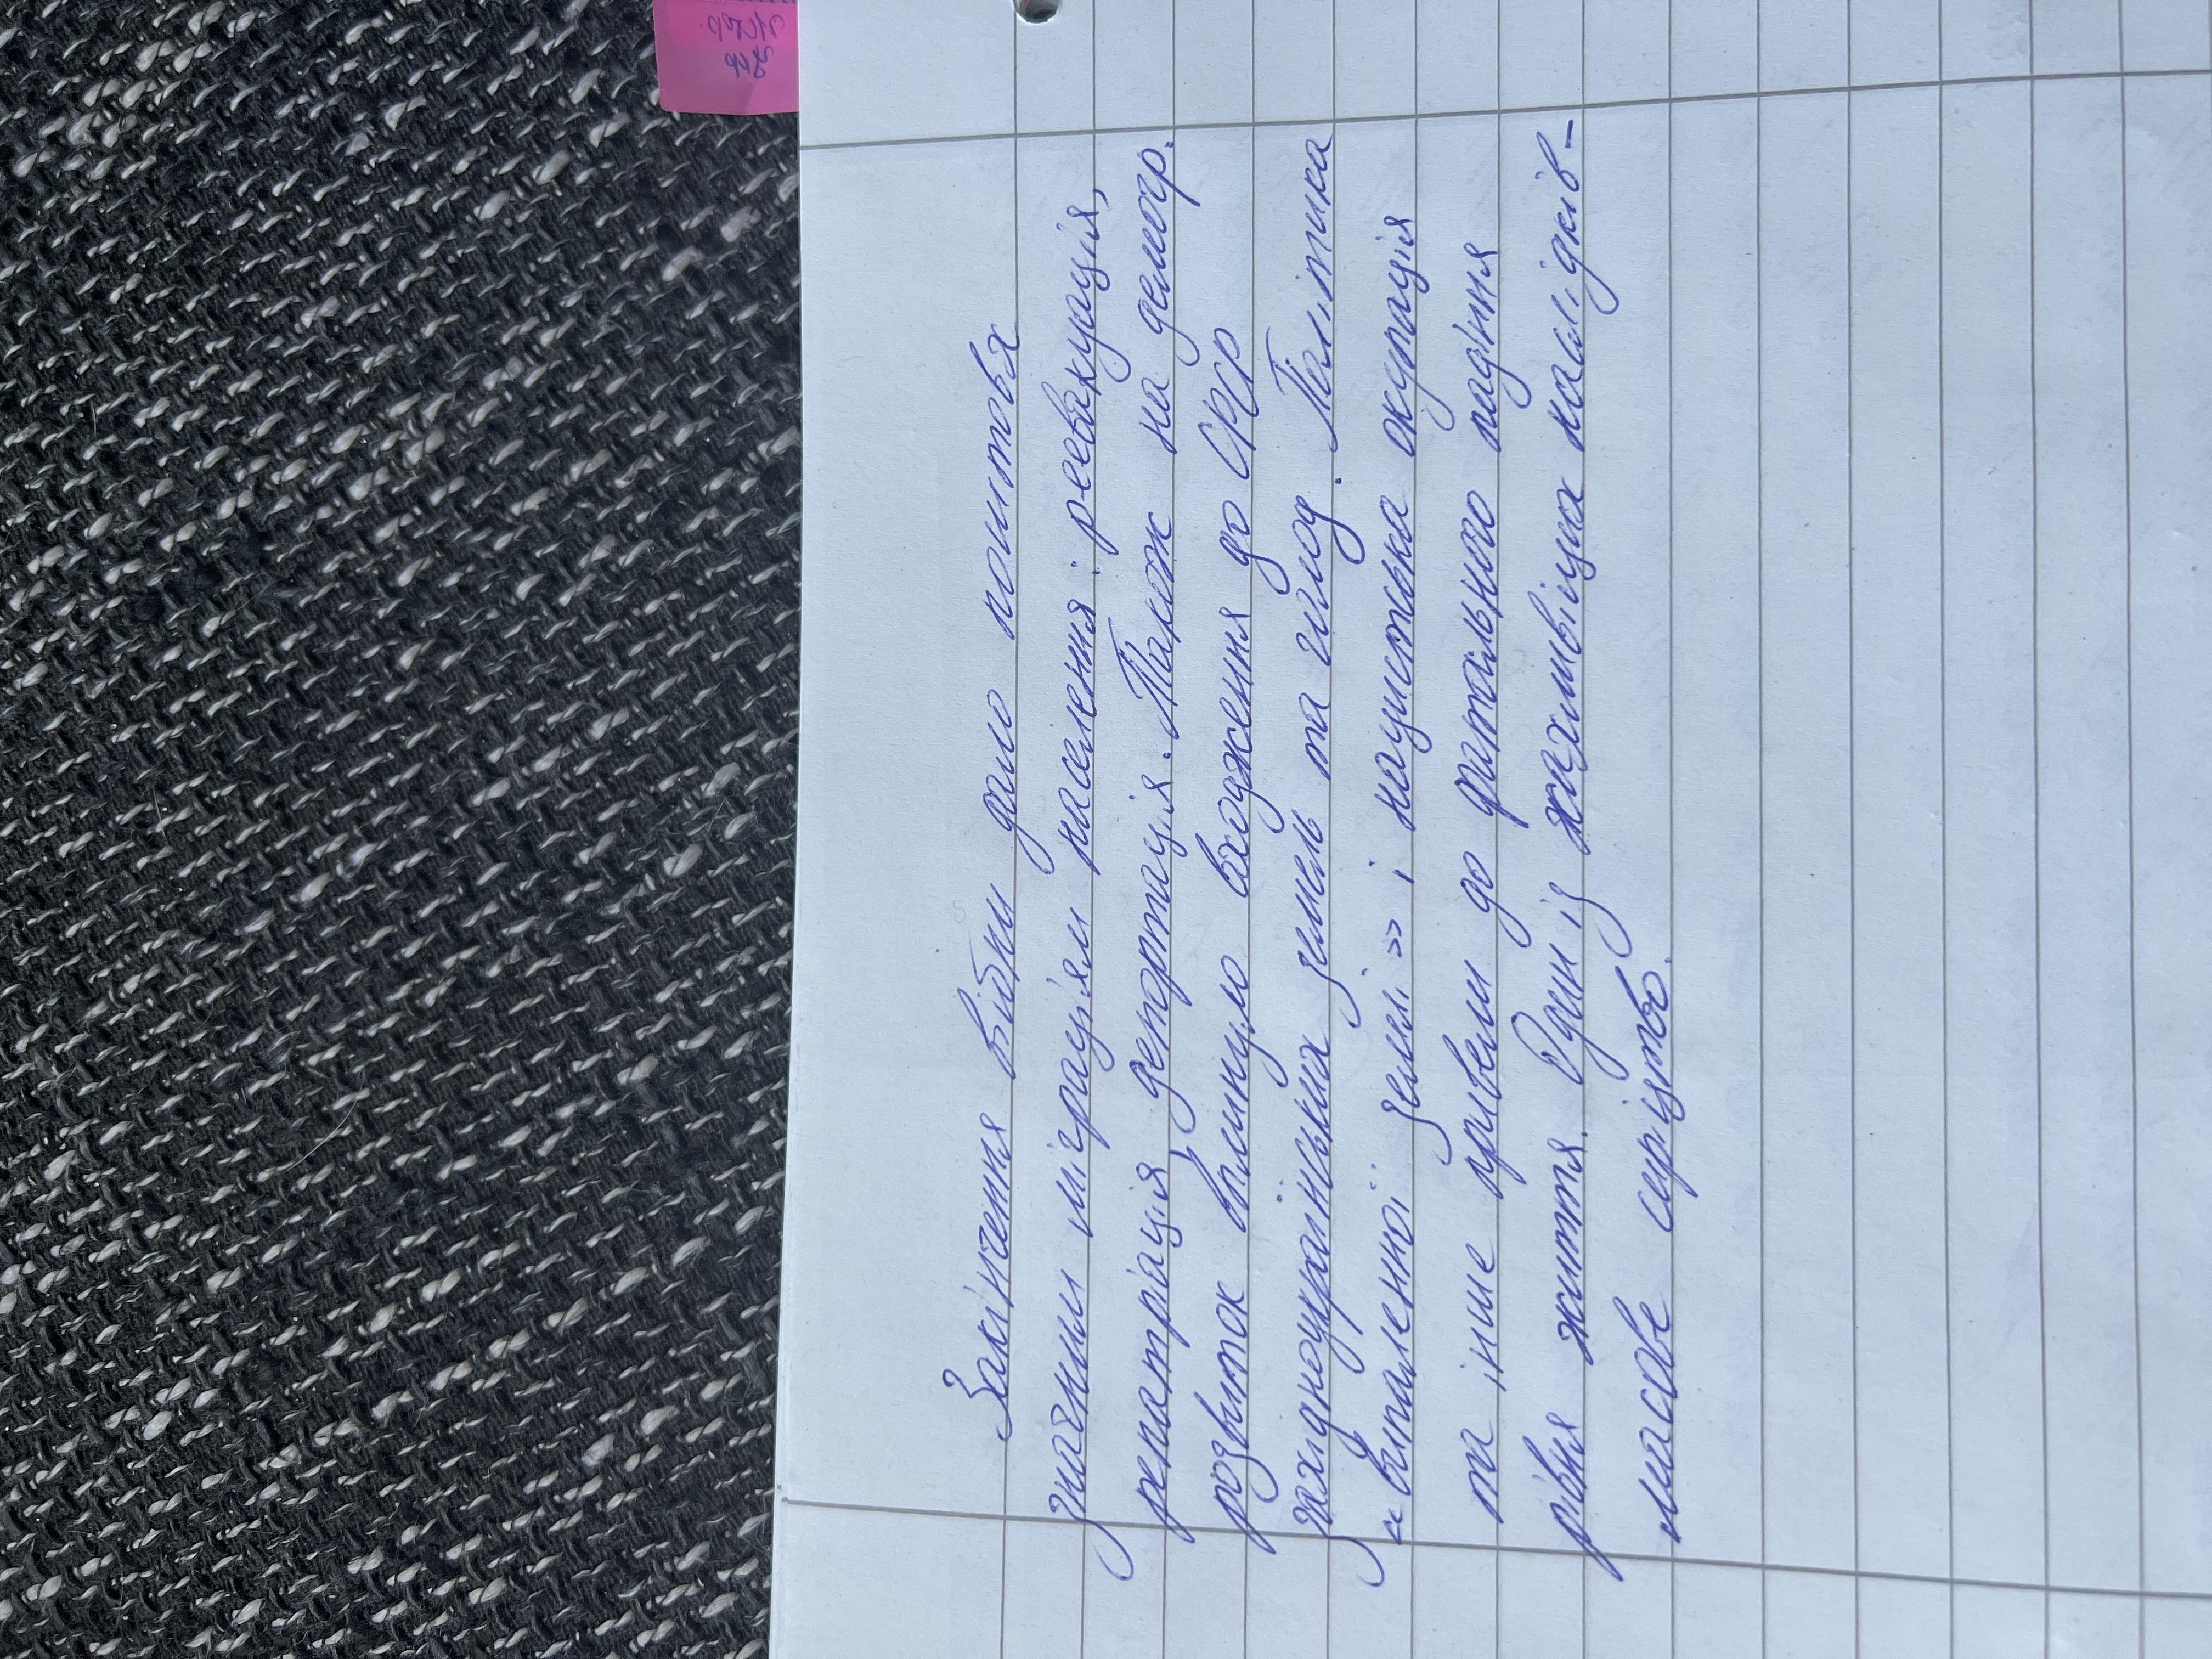 Закінчення війни дало поштовх
значним міграціям населення: реевакуація,
репатріація, депортація. Також на демогр.
розвиток вплинуло входження до СРСР
західноукраїнських земель та голод. Політика
«випаленної землі» і нацистська окупація
та інше привели до фатального падіння
рівня життя. Один із жахливіших наслідків-
масове сирітство.